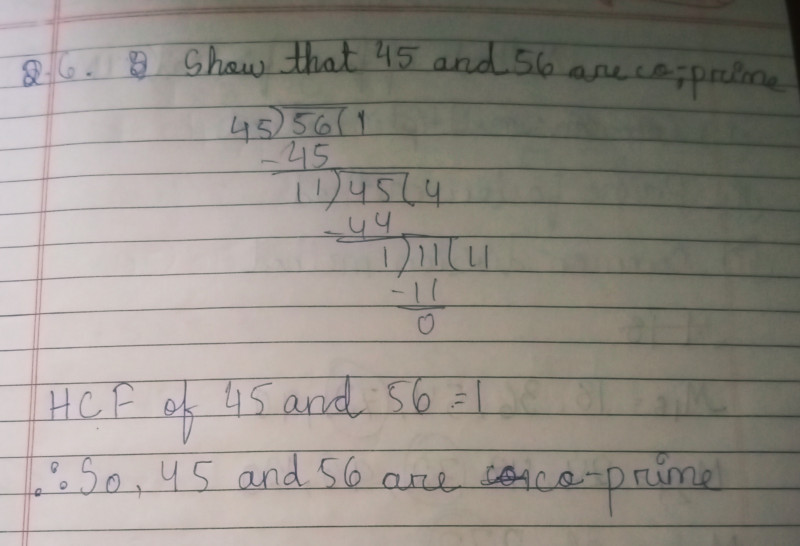 Q.6. Show that 45 and 56 are co-prime
45)56(1
-45
11)45(4
-44
1)11(11
-11
0
HCF of 45 and 56 = 1
∴ So, 45 and 56 are co-prime